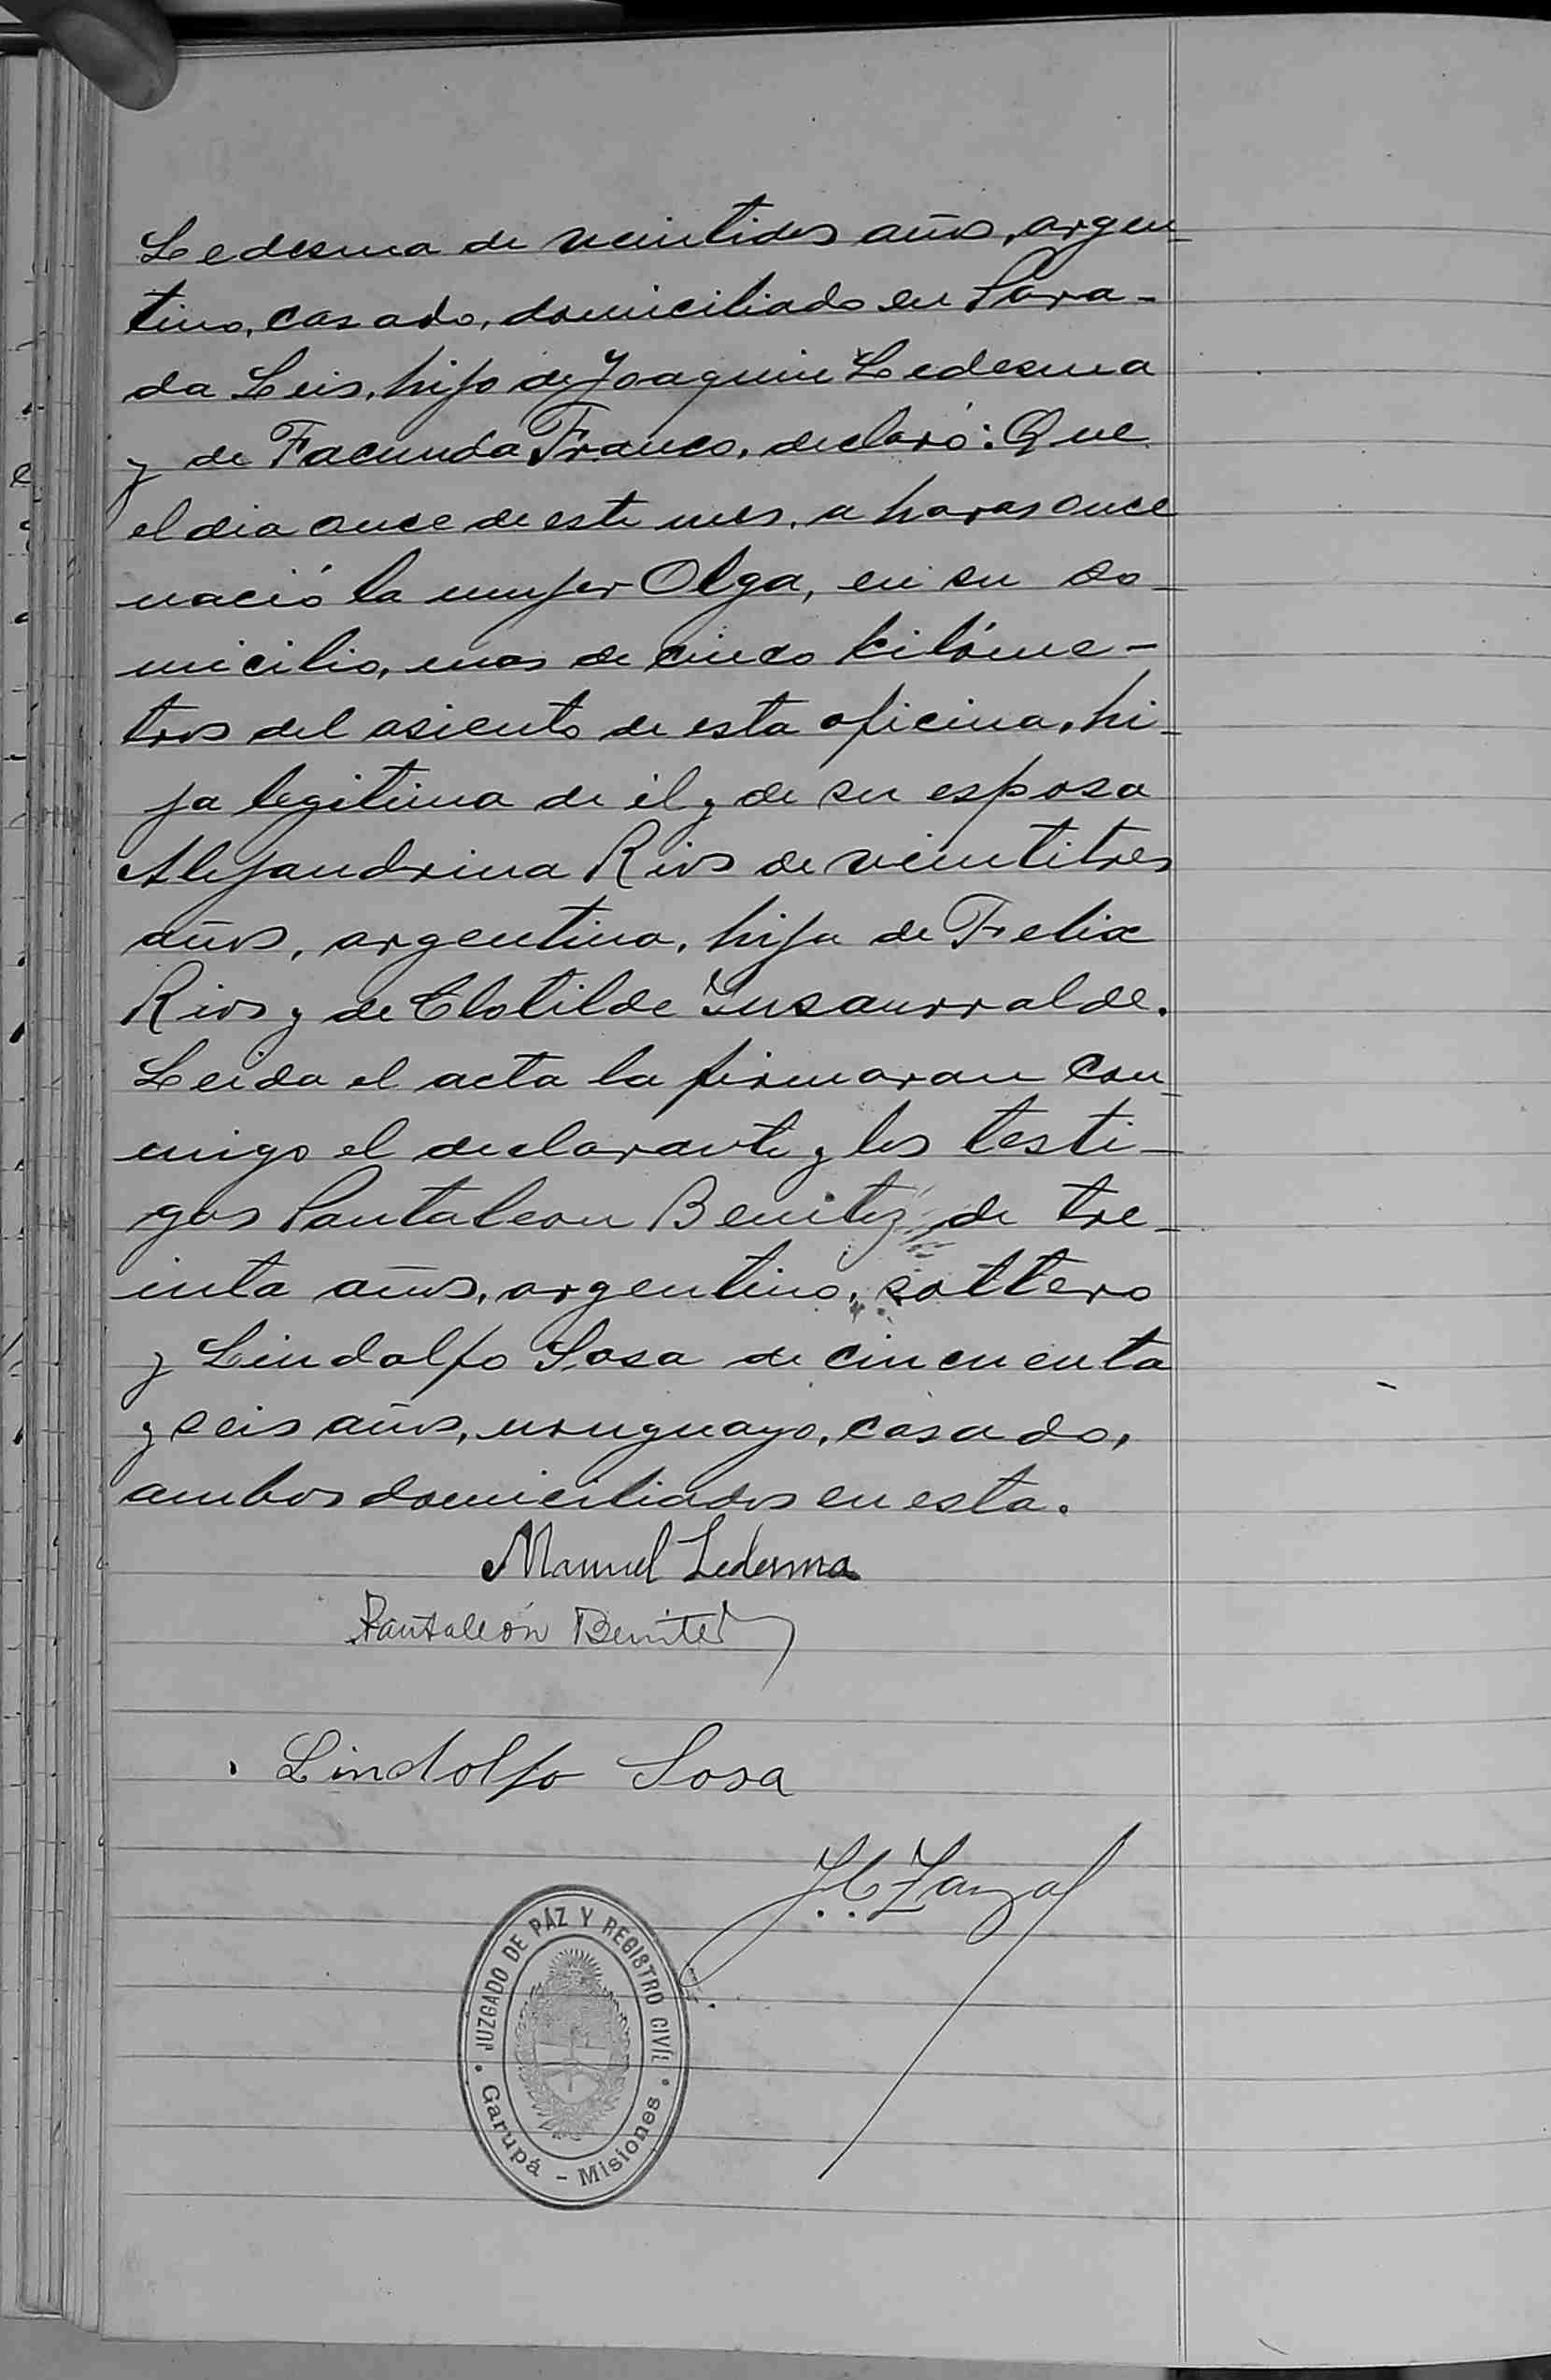 Ledesma de veintidos años, argen-
tino, casado, domiciliado en Para-
da Leis, hijo de Joaquin Ledesma
y de Facunda Franco, declaró: Que
el dia once de este mes, a horas once
nació la mujer Olga, en su do-
micilio, mas de cinco kilóme-
tros del asiento de esta oficina, hi-
ja legitima de él y de su esposa
Alejandrina Rios de veintitres
años, argentina, hija de Felix
Rios y de Clotilde Insaurralde.
Leida el acta la firmaran con-
migo el declarante y los testi-
gos Pantaleon Benitez de tre-
inta años, argentino, soltero
y Lindolfo Sosa de cincuenta
y seis años, uruguayo, casado,
ambos domiciliados en esta.
Manuel Ledesma
Pantaleón Benitez
Lindolfo Sosa
JUZGADO DE PAZ Y REGISTRO CIVIL
Garupá - Misiones